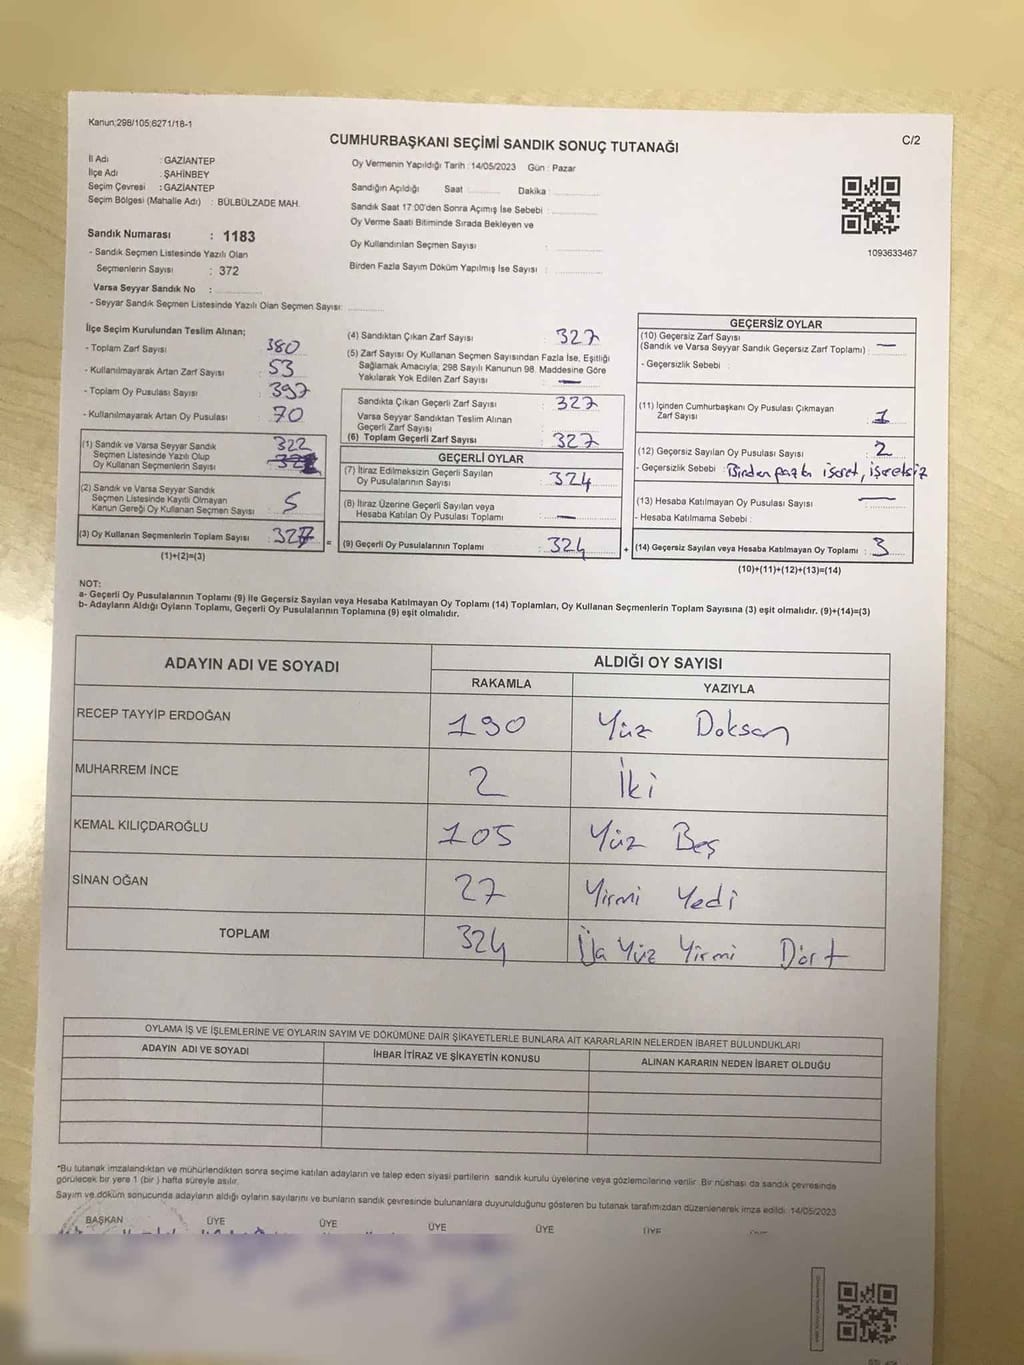 Kanun;298/105;6271/18-1
C/2
CUMHURBAŞKANI SEÇİMİ SANDIK SONUÇ TUTANAĞI
İl Adı : GAZİANTEP
İlçe Adı : ŞAHİNBEY
Seçim Çevresi : GAZİANTEP
Seçim Bölgesi (Mahalle Adı) : BÜLBÜLZADE MAH.
Sandık Numarası : 1183
- Sandık Seçmen Listesinde Yazılı Olan
Seçmenlerin Sayısı : 372
Varsa Seyyar Sandık No :
- Seyyar Sandık Seçmen Listesinde Yazılı Olan Seçmen Sayısı:
Oy Vermenin Yapıldığı Tarih : 14/05/2023 Gün : Pazar
Sandığın Açıldığı Saat Dakika :
Sandık Saat 17:00'den Sonra Açımış İse Sebebi :
Oy Verme Saati Bitiminde Sırada Bekleyen ve
Oy Kullandırılan Seçmen Sayısı :
Birden Fazla Sayım Döküm Yapılmış İse Sayısı :
1093633467
İlçe Seçim Kurulundan Teslim Alınan;
- Toplam Zarf Sayısı : 380
- Kullanılmayarak Artan Zarf Sayısı : 53
- Toplam Oy Pusulası Sayısı : 397
- Kullanılmayarak Artan Oy Pusulası : 70
(1) Sandık ve Varsa Seyyar Sandık
Seçmen Listesinde Yazılı Olup
Oy Kullanan Seçmenlerin Sayısı : 322
(2) Sandık ve Varsa Seyyar Sandık
Seçmen Listesinde Kayıtlı Olmayan
Kanun Gereği Oy Kullanan Seçmen Sayısı : 5
(3) Oy Kullanan Seçmenlerin Toplam Sayısı : 327 =
(1)+(2)=(3)
(4) Sandıktan Çıkan Zarf Sayısı : 327
(5) Zarf Sayısı Oy Kullanan Seçmen Sayısından Fazla İse, Eşitliği
Sağlamak Amacıyla, 298 Sayılı Kanunun 98. Maddesine Göre
Yakılarak Yok Edilen Zarf Sayısı : —
Sandıkta Çıkan Geçerli Zarf Sayısı : 327
Varsa Seyyar Sandıktan Teslim Alınan
Geçerli Zarf Sayısı :
(6) Toplam Geçerli Zarf Sayısı : 327
GEÇERLİ OYLAR
(7) İtiraz Edilmeksizin Geçerli Sayılan
Oy Pusulalarının Sayısı : 324
(8) İtiraz Üzerine Geçerli Sayılan veya
Hesaba Katılan Oy Pusulası Toplamı : —
(9) Geçerli Oy Pusulalarının Toplamı : 324 +
GEÇERSİZ OYLAR
(10) Geçersiz Zarf Sayısı
(Sandık ve Varsa Seyyar Sandık Geçersiz Zarf Toplamı) : —
- Geçersizlik Sebebi :
(11) İçinden Cumhurbaşkanı Oy Pusulası Çıkmayan
Zarf Sayısı : 1
(12) Geçersiz Sayılan Oy Pusulası Sayısı : 2
- Geçersizlik Sebebi : Birden fazla işaret, işaretsiz
(13) Hesaba Katılmayan Oy Pusulası Sayısı : —
- Hesaba Katılmama Sebebi :
(14) Geçersiz Sayılan veya Hesaba Katılmayan Oy Toplamı : 3
(10)+(11)+(12)+(13)=(14)
NOT:
a- Geçerli Oy Pusulalarının Toplamı (9) ile Geçersiz Sayılan veya Hesaba Katılmayan Oy Toplamı (14) Toplamları, Oy Kullanan Seçmenlerin Toplam Sayısına (3) eşit olmalıdır. (9)+(14)=(3)
b- Adayların Aldığı Oyların Toplamı, Geçerli Oy Pusulalarının Toplamına (9) eşit olmalıdır.
ADAYIN ADI VE SOYADI ALDIĞI OY SAYISI
RAKAMLA YAZIYLA
RECEP TAYYİP ERDOĞAN 190 Yüz Doksan
MUHARREM İNCE 2 İki
KEMAL KILIÇDAROĞLU 105 Yüz Beş
SİNAN OĞAN 27 Yirmi Yedi
TOPLAM 324 Üç Yüz Yirmi Dört
OYLAMA İŞ VE İŞLEMLERİNE VE OYLARIN SAYIM VE DÖKÜMÜNE DAİR ŞİKAYETLERLE BUNLARA AİT KARARLARIN NELERDEN İBARET BULUNDUKLARI
ADAYIN ADI VE SOYADI İHBAR İTİRAZ VE ŞİKAYETİN KONUSU ALINAN KARARIN NEDEN İBARET OLDUĞU
*Bu tutanak imzalandıktan ve mühürlendikten sonra seçime katılan adayların ve talep eden siyasi partilerin sandık kurulu üyelerine veya gözlemcilerine verilir. Bir nüshası da sandık çevresinde
görülecek bir yere 1 (bir ) hafta süreyle asılır.
Sayım ve döküm sonucunda adayların aldığı oyların sayılarını ve bunların sandık çevresinde bulunanlara duyurulduğunu gösteren bu tutanak tarafımızdan düzenlenerek imza edildi. 14/05/2023
BAŞKAN ÜYE ÜYE ÜYE ÜYE ÜYE